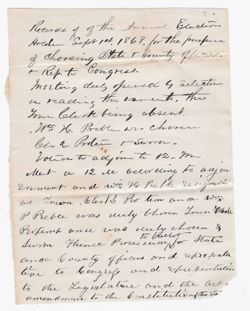 Records of of the Annual Election
Holden Sept 1st 1868, for the purpose
of Choosing State & County Officers
& Rep to Congress.
Meeting duly opened by selectmen
in reading the warrant, the
Town Clerk being absent,
Wm H. Preble was chosen
Clerk Protem & Sworn.
Voted to adjourn to 12. M.
Met at 12 M according to adjo
urnment and Wm H Preble resigned
as Town Clerk
P Preble was duly chosen Town Clerk
Protemp and was duly chosen &
Sworn Thence Proceeded to Ballot for State
and County officers and representa
tive to Congress and representative
to the Legislature and the
amendment to the Constitution of the